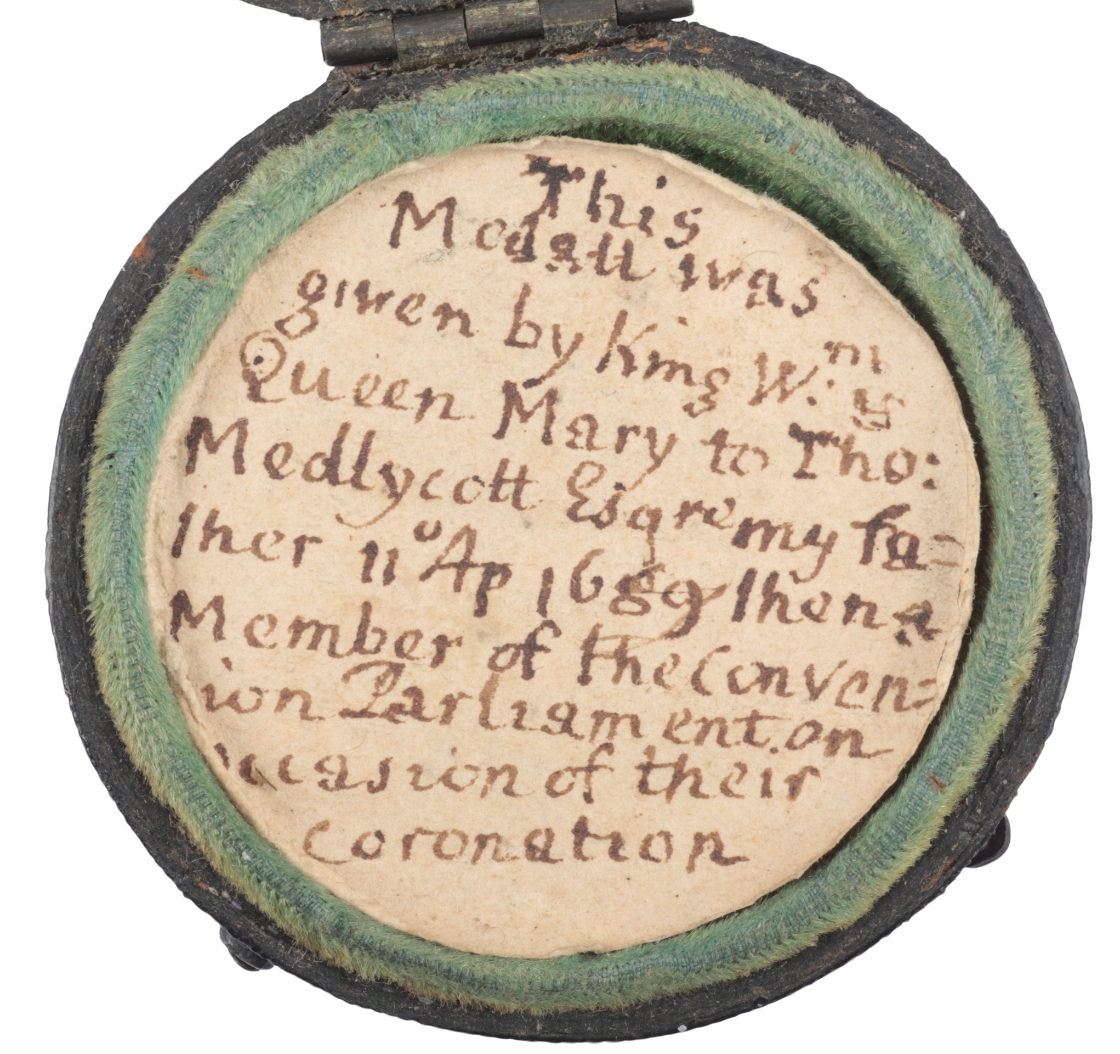 This
Medall was
given by King W.m &
Queen Mary to Tho:
Medlycott Esqre my fa=
ther 11o Ap 1689 then a
Member of the Conven=
ion Parliament on
occasion of their
coronation